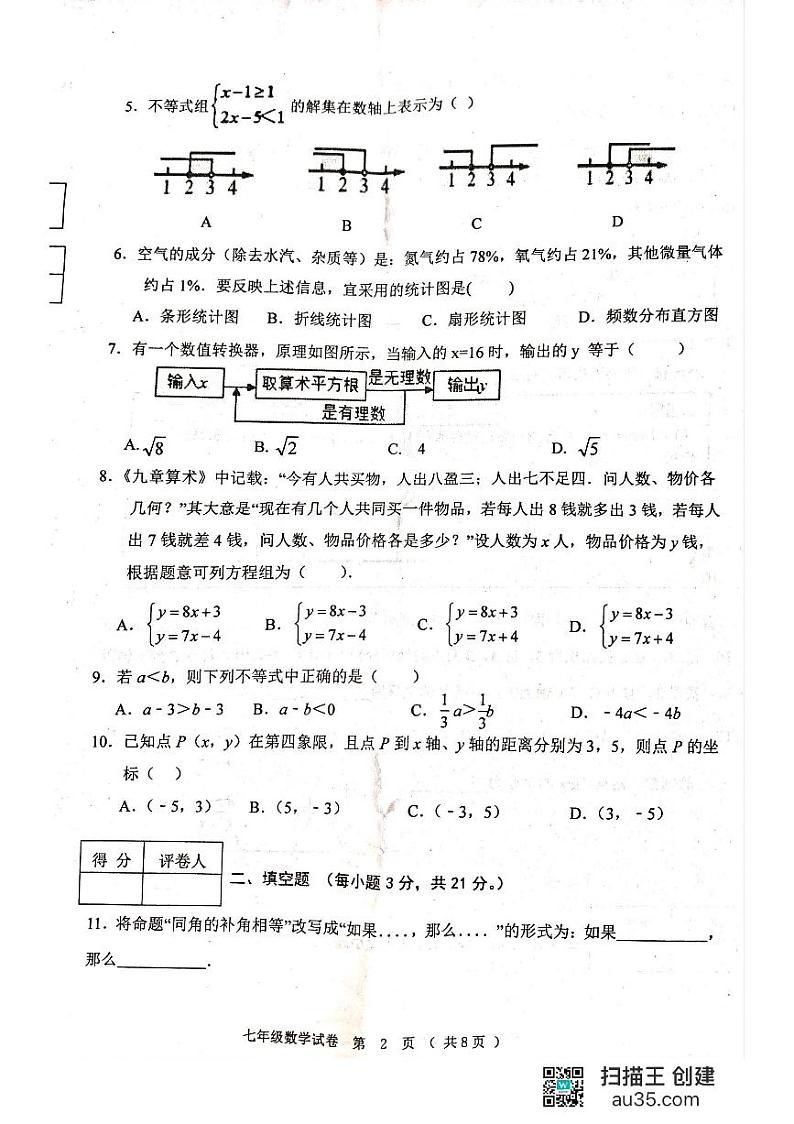 5．不等式组{x-1≥1 2x-5<1 的解集在数轴上表示为（ ）
1 2 3 4 1 2 3 4 1 2 3 4 1 2 3 4
A B C D
6．空气的成分（除去水汽、杂质等）是：氮气约占78%，氧气约占21%，其他微量气体
约占1%．要反映上述信息，宜采用的统计图是( )
A．条形统计图 B．折线统计图 C．扇形统计图 D．频数分布直方图
7．有一个数值转换器，原理如图所示，当输入的x=16时，输出的y 等于（ ）
输入x 取算术平方根 是无理数 输出y
是有理数
A.√8 B. √2 C. 4 D. √5
8．《九章算术》中记载：“今有人共买物，人出八盈三；人出七不足四．问人数、物价各
几何？”其大意是“现在有几个人共同买一件物品，若每人出8钱就多出3钱，若每人
出7钱就差4钱，问人数、物品价格各是多少？”设人数为x人，物品价格为y钱，
根据题意可列方程组为（ ）．
A．{y=8x+3 y=7x-4 B．{y=8x-3 y=7x-4 C．{y=8x+3 y=7x+4 D．{y=8x-3 y=7x+4
9．若a<b，则下列不等式中正确的是（ ）
A．a-3>b-3 B．a-b<0 C．1/3 a>1/3 b D．-4a<-4b
10．已知点P（x，y）在第四象限，且点P到x轴、y轴的距离分别为3，5，则点P的坐
标（ ）
A．（-5，3） B．（5，-3） C．（-3，5） D．（3，-5）
得 分 评卷人
二、填空题 （每小题3分，共21分。）
11．将命题“同角的补角相等”改写成“如果....，那么....”的形式为：如果__________，
那么__________．
七年级数学试卷 第 2 页（共8页）
扫描王 创建
au35.com